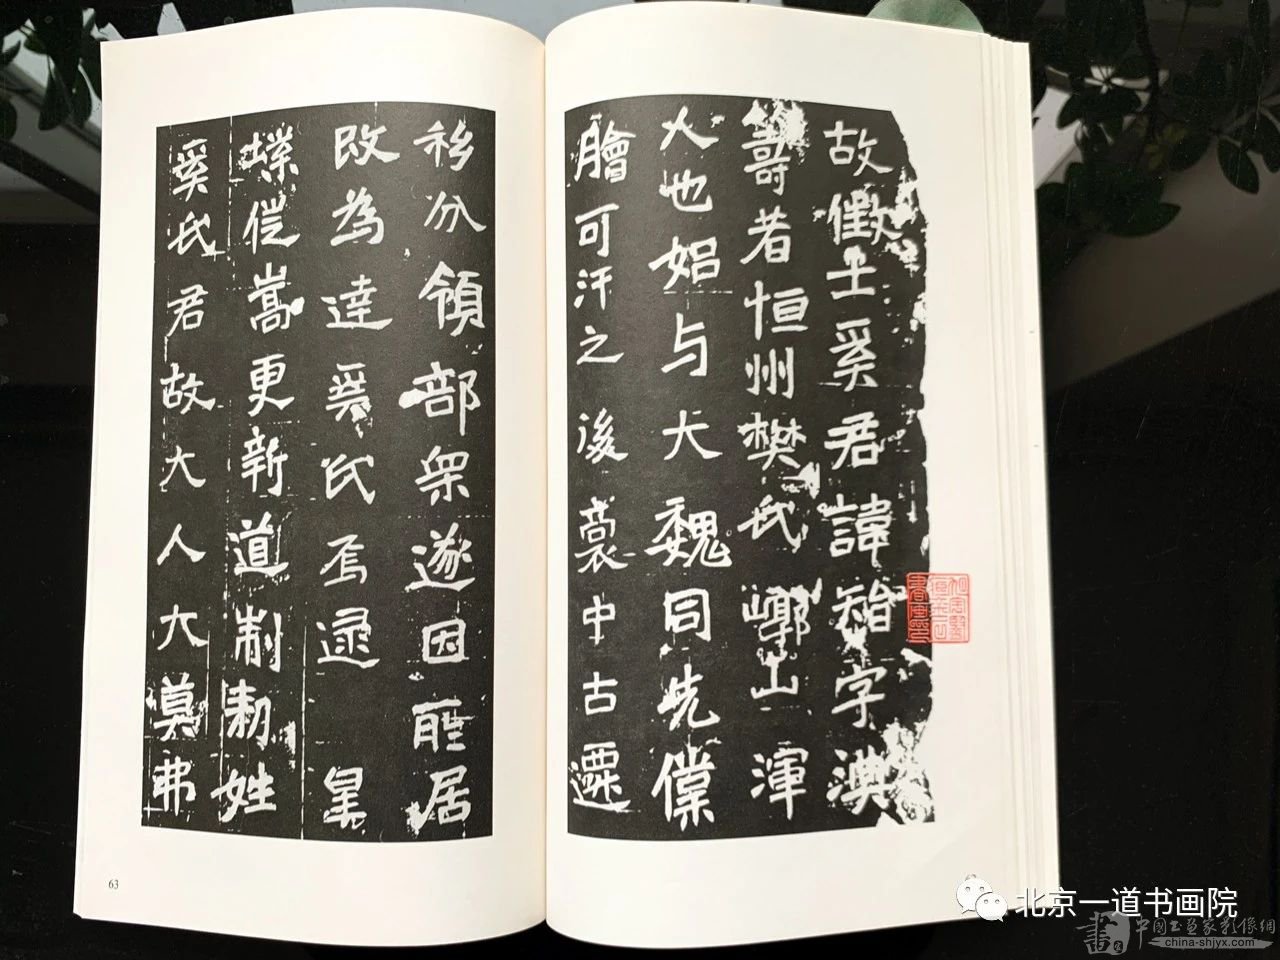 故徵士奚君諱智字淟
者恒州樊氏崞山渾
人也始与大魏同先僕
膾可汗之後裔中古遷
移分領部眾遂因所居
改為達奚氏焉逮皇
徙嵩更新道制勅姓
奚氏君故大人大莫弗
63
北京一道书画院
中国书画家影像网
china-shjyx.com